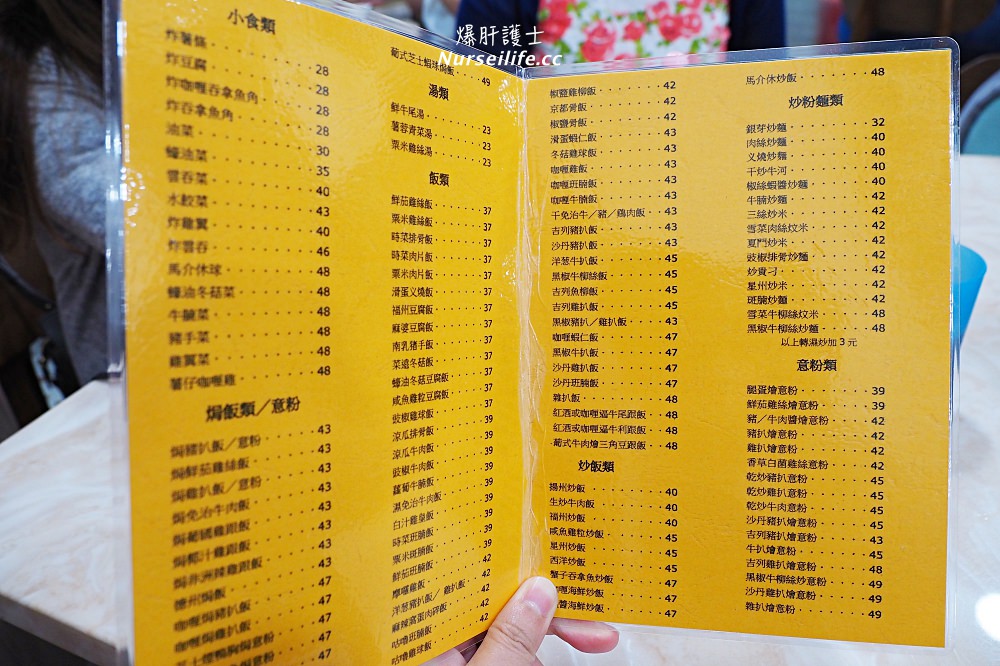 爆肝護士
Nurseilife.cc
小食類
炸薯條 28
炸豆腐 28
炸咖喱吞拿魚角 28
炸吞拿魚角 28
油菜 30
蠔油菜 35
雲吞菜 40
水餃菜 43
炸雞翼 40
炸雲吞 46
馬介休球 48
蠔油冬菇菜 48
牛腩菜 48
豬手菜 48
雞翼菜 48
薯仔咖喱雞 48
焗飯類／意粉
焗豬扒飯／意粉 43
焗鮮茄雞絲飯 43
焗雞扒飯／意粉 43
焗免治牛肉飯 43
焗葡國雞跟飯 43
焗椰汁雞跟飯 43
焗非洲辣雞跟飯 43
德州焗飯 47
咖喱焗豬扒飯 47
咖喱焗雞扒飯 47
葡式芝士蝦球焗飯 49
湯類
鮮牛尾湯 23
薯蓉青菜湯 23
粟米雞絲湯 23
飯類
鮮茄雞絲飯 37
粟米雞絲飯 37
時菜排骨飯 37
時菜肉片飯 37
粟米肉片飯 37
滑蛋义燒飯 37
福州豆腐飯 37
麻婆豆腐飯 37
南乳豬手飯 37
菜遠冬菇飯 37
蠔油冬菇豆腐飯 37
咸魚雞粒豆腐飯 37
豉椒雞球飯 39
涼瓜排骨飯 39
涼瓜牛肉飯 39
豉椒牛肉飯 39
蘿蔔牛腩飯 39
濕免治牛肉飯 39
白汁雞皇飯 39
時菜班腩飯 39
粟米斑腩飯 39
鮮茄班腩飯 42
摩囉雞飯 42
洋葱豬扒／雞扒飯 42
麻辣窩蛋肉碎飯 42
咕嚕班腩飯 42
咕嚕雞球飯
椒鹽雞柳飯 42
京都骨飯 42
椒鹽骨飯 42
滑蛋蝦仁飯 43
冬菇雞球飯 43
咖喱雞飯 43
咖喱班腩飯 43
咖喱牛腩飯 43
干免治牛／豬／鷄肉飯 43
吉列豬扒飯 43
沙丹豬扒飯 43
洋葱牛扒飯 45
黑椒牛柳絲飯 45
吉列魚柳飯 45
吉列雞扒飯 45
黑椒豬扒／雞扒飯 43
咖喱蝦仁飯 47
黑椒牛扒飯 47
沙丹雞扒飯 47
沙丹班腩飯 47
雜扒飯 48
紅酒或咖喱逼牛尾跟飯 48
紅酒或咖喱逼牛利跟飯 48
葡式牛肉燴三角豆跟飯 48
炒飯類
揚州炒飯 40
生炒牛肉飯 40
福州炒飯 40
咸魚雞粒炒飯 45
星州炒飯 45
西洋炒飯 45
蟹子吞拿魚炒飯 47
咖喱海鮮炒飯 47
醬海鮮炒飯 47
馬介休炒飯 48
炒粉麵類
銀芽炒麵 32
肉絲炒麵 40
义燒炒麵 40
干炒牛河 40
椒絲蝦醬炒麵 40
牛腩炒麵 42
三絲炒米 42
雪菜肉絲炆米 42
夏門炒米 42
豉椒排骨炒麵 42
炒貴刁 42
星州炒米 42
斑腩炒麵 42
雪菜牛柳絲炆米 48
黑椒牛柳絲炒麵 48
以上轉濕炒加 3 元
意粉類
腿蛋燴意粉 39
鮮茄雞絲燴意粉 39
豬／牛肉醬燴意粉 42
豬扒燴意粉 42
雞扒燴意粉 42
香草白菌雞絲意粉 42
乾炒豬扒意粉 45
乾炒雞扒意粉 45
乾炒牛肉意粉 45
沙丹豬扒燴意粉 45
吉列豬扒燴意粉 43
牛扒燴意粉 45
吉列雞扒燴意粉 48
黑椒牛柳絲炒意粉 49
沙丹雞扒燴意粉 49
雜扒燴意粉 49